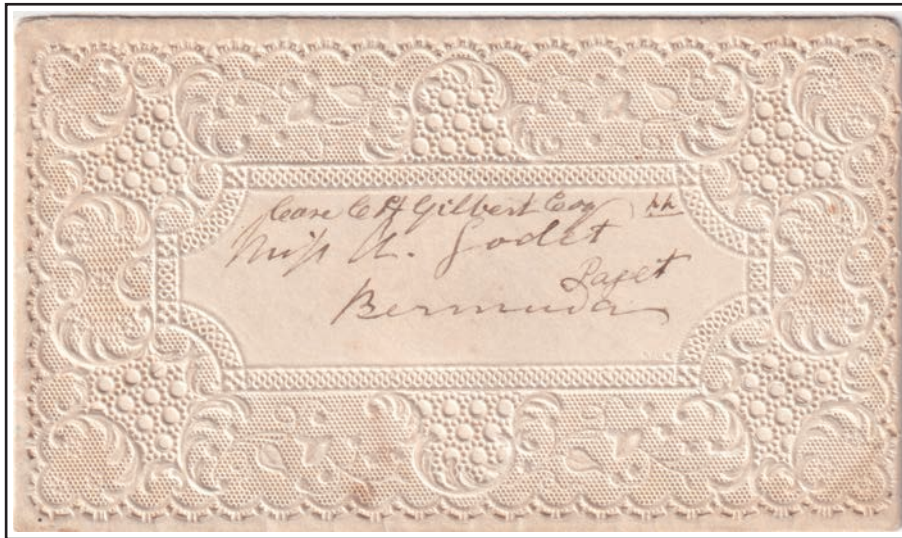 Care C H Gilbert Esq
Miss A. Godet
Paget
Bermuda